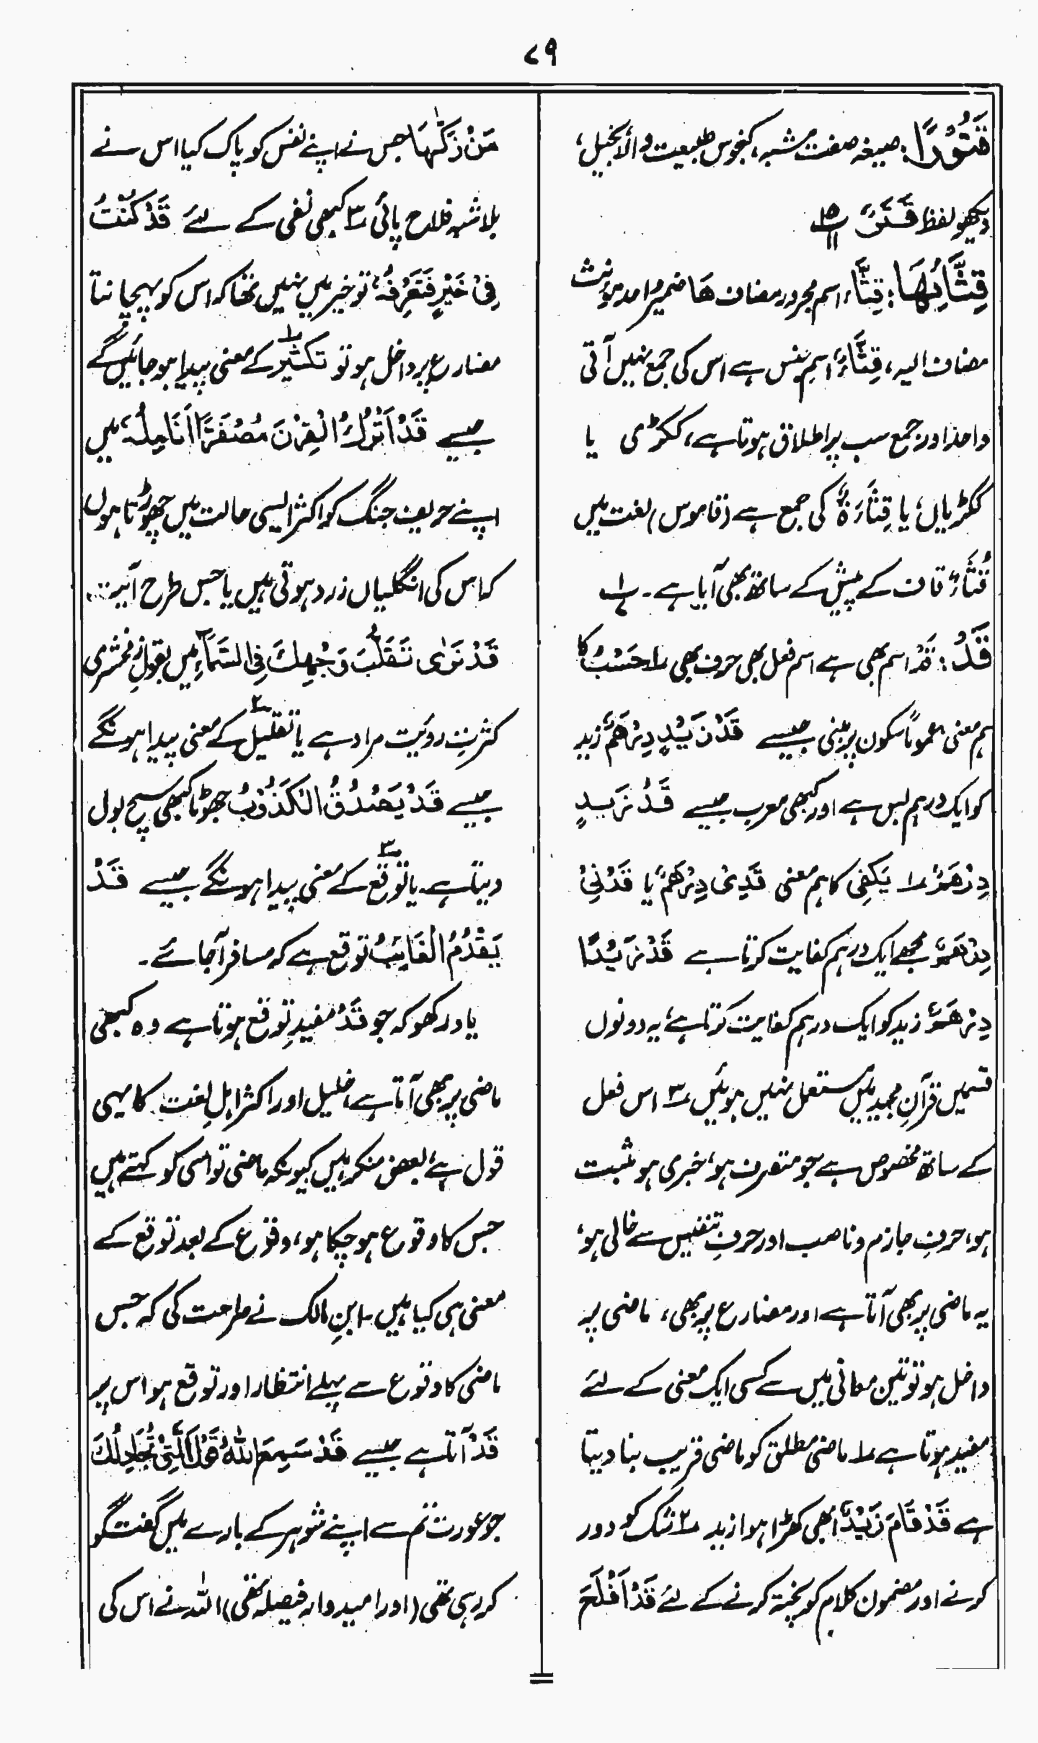 ۷۹
قَتُوْرًا: صیغہ صفت مشبہ، کنجوس طبیعت والا بخیل،
دیکھو لفظ قَتَرَ ۱۵/۱۱
قِثَّائِهَا: قِثَّاء، اسم مجرور مضاف هَا ضمیر واحد مونث
مضاف الیہ، قِثَّاءُ اسم جنس ہے اس کی جمع نہیں آتی
واحد اور جمع سب پر اطلاق ہوتا ہے، ککڑی یا
ککڑیاں، یا قِثَّاءَةٌ کی جمع ہے (قاموس) لغت میں
قُثَّاءُ قاف کے پیش کے ساتھ بھی آیا ہے۔
قَدْ: قَدْ اسم بھی ہے اسم فعل بھی حرف بھی ۱؎ حَسْبُ کا
ہم معنی عموماً سکون پر مبنی جیسے قَدْ زَيْدٍ دِرْهَمٌ زید
کو ایک درہم بس ہے اور کبھی معرب جیسے قَدُ زَيْدٍ
دِرْهَمٌ ۲؎ يَكْفِی کا ہم معنی قَدِیْ دِرْهَمٌ یا قَدْنِیْ
دِرْهَمٌ مجھے ایک درہم کفایت کرتا ہے قَدْ زَيْدًا
دِرْهَمٌ زید کو ایک درہم کفایت کرتا ہے، یہ دونوں
قسمیں قرآن مجید میں مستعمل نہیں ہوئیں ۳؎ اس فعل
کے ساتھ مخصوص ہے جو متصرف ہو، خبری ہو مثبت
ہو، حرفِ جازم و ناصب اور حرفِ تنفیس سے خالی ہو،
یہ ماضی پر بھی آتا ہے اور مضارع پر بھی، ماضی پر
داخل ہو تو تین معانی میں سے کسی ایک معنی کے لئے
مفید ہوتا ہے ۱؎ ماضی مطلق کو ماضی قریب بنا دیتا
ہے قَدْ قَامَ زَيْدٌ ابھی کھڑا ہوا زید ۲؎ شک کو دور
کرنے اور مضمون کلام کو پختہ کرنے کے لئے قَدْ اَفْلَحَ
مَنْ زَكّٰهَا جس نے اپنے نفس کو پاک کیا اس نے
بلاشبہ فلاح پائی ۳؎ کبھی نفی کے لئے قَدْ كُنْتَ
فِیْ خَيْرٍ فَتَعْرِفُهٗ، تو خیر میں نہیں تھا کہ اس کو پہچانتا
مضارع پر داخل ہو تو ۱؎ تکثیر کے معنی پیدا ہو جائیں گے
جیسے قَدْ اَتْرُكُ الْقِرْنَ مُصْفَرًّا اَنَامِلُهٗ، میں
اپنے حریف جنگ کو اکثر ایسی حالت میں چھوڑتا ہوں
کہ اس کی انگلیاں زرد ہوتی ہیں یا جس طرح آیت
قَدْ نَرٰى تَقَلُّبَ وَجْهِكَ فِی السَّمَآءِ میں بقول زمخشری
کثرتِ رویت مراد ہے یا ۲؎ تقلیل کے معنی پیدا ہونگے
جیسے قَدْ يَصْدُقُ الْكَذُوْبُ جھوٹا کبھی سچ بول
دیتا ہے۔ یا ۳؎ توقع کے معنی پیدا ہونگے جیسے قَدْ
يَقْدُمُ الْغَائِبُ توقع ہے کہ مسافر آجائے۔
یاد رکھو کہ جو قَدْ مفیدِ توقع ہوتا ہے وہ کبھی
ماضی پر بھی آتا ہے، خلیل اور اکثر اہل لغت کا یہی
قول ہے، بعض منکر ہیں کیونکہ ماضی تو اسی کو کہتے ہیں
جس کا وقوع ہو چکا ہو، وقوع کے بعد توقع کے
معنی ہی کیا ہیں۔ ابن مالک نے صراحت کی کہ جس
ماضی کا وقوع سے پہلے انتظار اور توقع ہو اس پر
قَدْ آتا ہے جیسے قَدْ سَمِعَ اللّٰهُ قَوْلَ الَّتِیْ تُجَادِلُكَ
جو عورت تم سے اپنے شوہر کے بارے میں گفتگو
کر رہی تھی (اور امیدوار فیصلہ تھی) اللہ نے اس کی